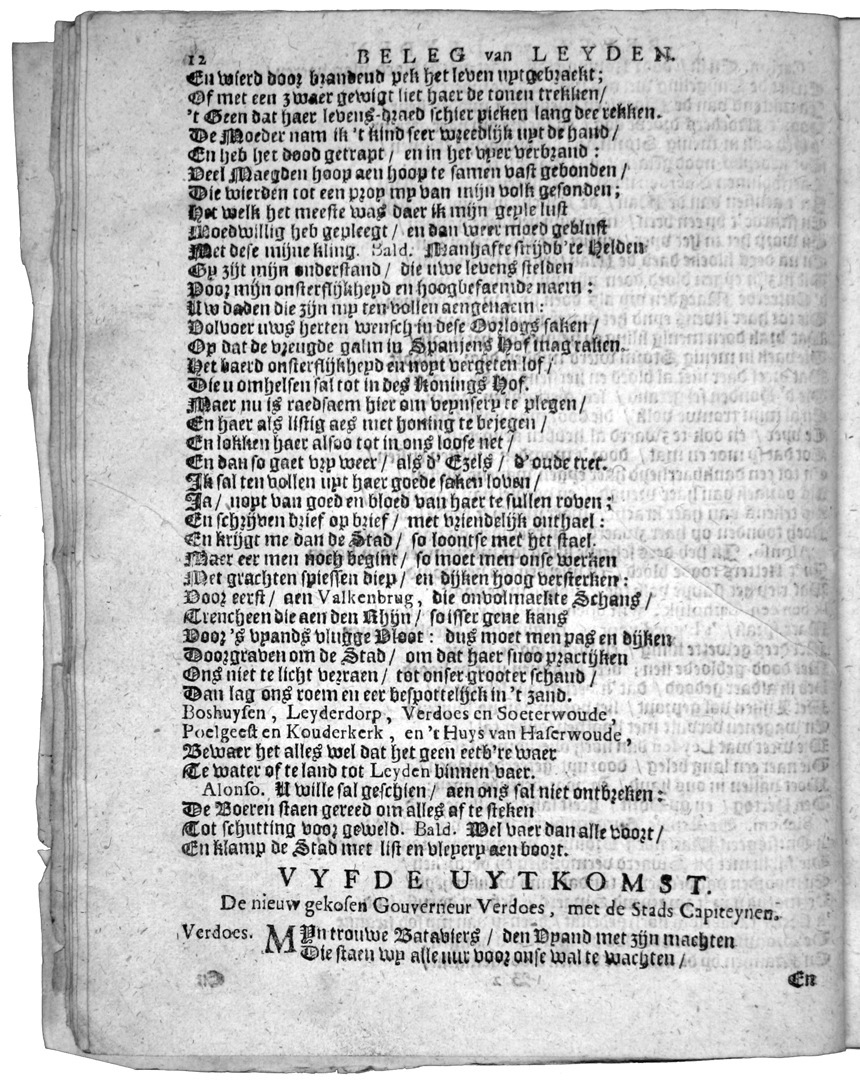 12 BELEG van LEYDEN.
En wierd door brandend pek het leven uytgebraekt;
Of met een zwaer gewigt liet haer de tonen trekken/
't Geen dat haer levens-draed schier pieken lang dee rekken.
De Moeder nam ik 't kind seer wreedlijk uyt de hand/
En heb het dood getrapt/ en in het vyer verbrand:
Veel Maegden hoop aen hoop te samen vast gebonden/
Die wierden tot een prop my van mijn volk gesonden;
Het welk het meeste was daer ik mijn geyle lust
Moedwillig heb gepleegt/ en dan weer moed geblust
Met dese mijne kling. Bald. Manhafte strijdb're Helden
Gy zijt mijn onderstand/ die uwe levens stelden
Voor mijn onsterflijkheyd en hoogbefaemde naem:
Uw daden die zijn my ten vollen aengenaem:
Volvoer uws herten wensch in dese Oorlogs saken/
Op dat de vreugde galm in Spanjens Hof mag raken.
Het baerd onsterflijkheyd en noyt vergeten lof/
Die u omhelsen sal tot in des Konings Hof.
Maer nu is raedsaem hier om veynsery te plegen/
En haer als listig aes met honing te bejegen/
En lokken haer alsoo tot in ons loose net/
En dan so gaet vry weer/ als d' Ezels/ d'oude tret.
Ik sal ten vollen uyt haer goede saken loven/
Ja/ noyt van goed en bloed van haer te sullen roven;
En schrijven brief op brief/ met vriendelijk onthael:
En krijgt me dan de Stad/ so loontse met het stael.
Maer eer men noch begint/ so moet men onse werken
Met grachten spiessen diep/ en dijken hoog versterken:
Voor eerst/ aen Valkenbrug, die onvolmaekte Schans/
Trencheen die aen den Rhijn/ so isser gene kans
Voor 's vyands vlugge Vloot: dus moet men pas en dijken
Doorgraven om de Stad/ om dat haer snoo practijken
Ons niet te licht verraen/ tot onser grooter schand/
Dan lag ons roem en eer bespottelijck in 't zand.
Boshuysen, Leyderdorp, Verdoes en Soeterwoude,
Poelgeest en Kouderkerk, en 't Huys van Haserwoude,
Bewaer het alles wel dat het geen eetb're waer
Te water of te land tot Leyden binnen vaer.
Alonso. U wille sal geschien/ aen ons sal niet ontbreken:
De Boeren staen gereed om alles af te steken
Tot schutting voor geweld. Bald. Wel vaer dan alle voort/
En klamp de Stad met list en vleyery aen boort.
VYFDE UYTKOMST.
De nieuw gekosen Gouverneur Verdoes, met de Stads Capiteynen.
Verdoes. MYn trouwe Bataviers/ den Vyand met zijn machten
Die staen wy alle uur voor onse wal te wachten/
En